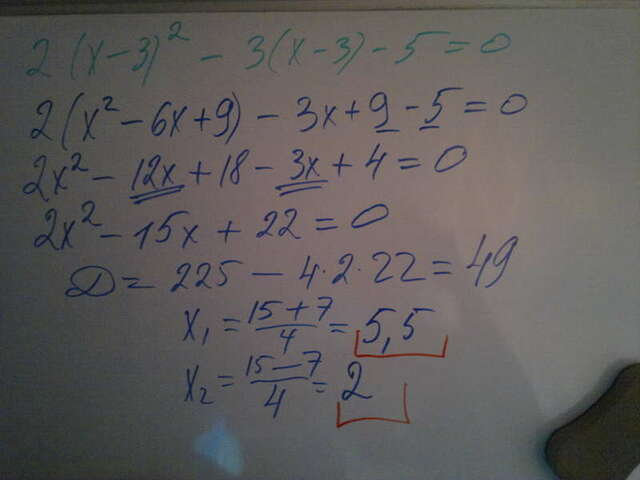 2(x-3)² - 3(x-3) - 5 = 0
2(x² - 6x + 9) - 3x + 9 - 5 = 0
2x² - 12x + 18 - 3x + 4 = 0
2x² - 15x + 22 = 0
D = 225 - 4·2·22 = 49
x₁ = (15+7)/4 = 5,5
x₂ = (15-7)/4 = 2